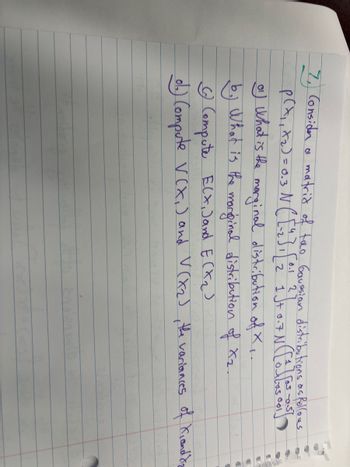 2.) Consider a matrix of two Gaussian distributions as follows
p(x₁, x₂) = 0.3 N ([4 -2], [0.1 2 2 1]) + 0.7 N (
a) What is the marginal distribution of x₁.
b) What is the marginal distribution of x₂.
c) Compute E(x₁) and E(x₂)
d.) Compute V(x₁) and V(x₂), the variances of x₁ and x₂